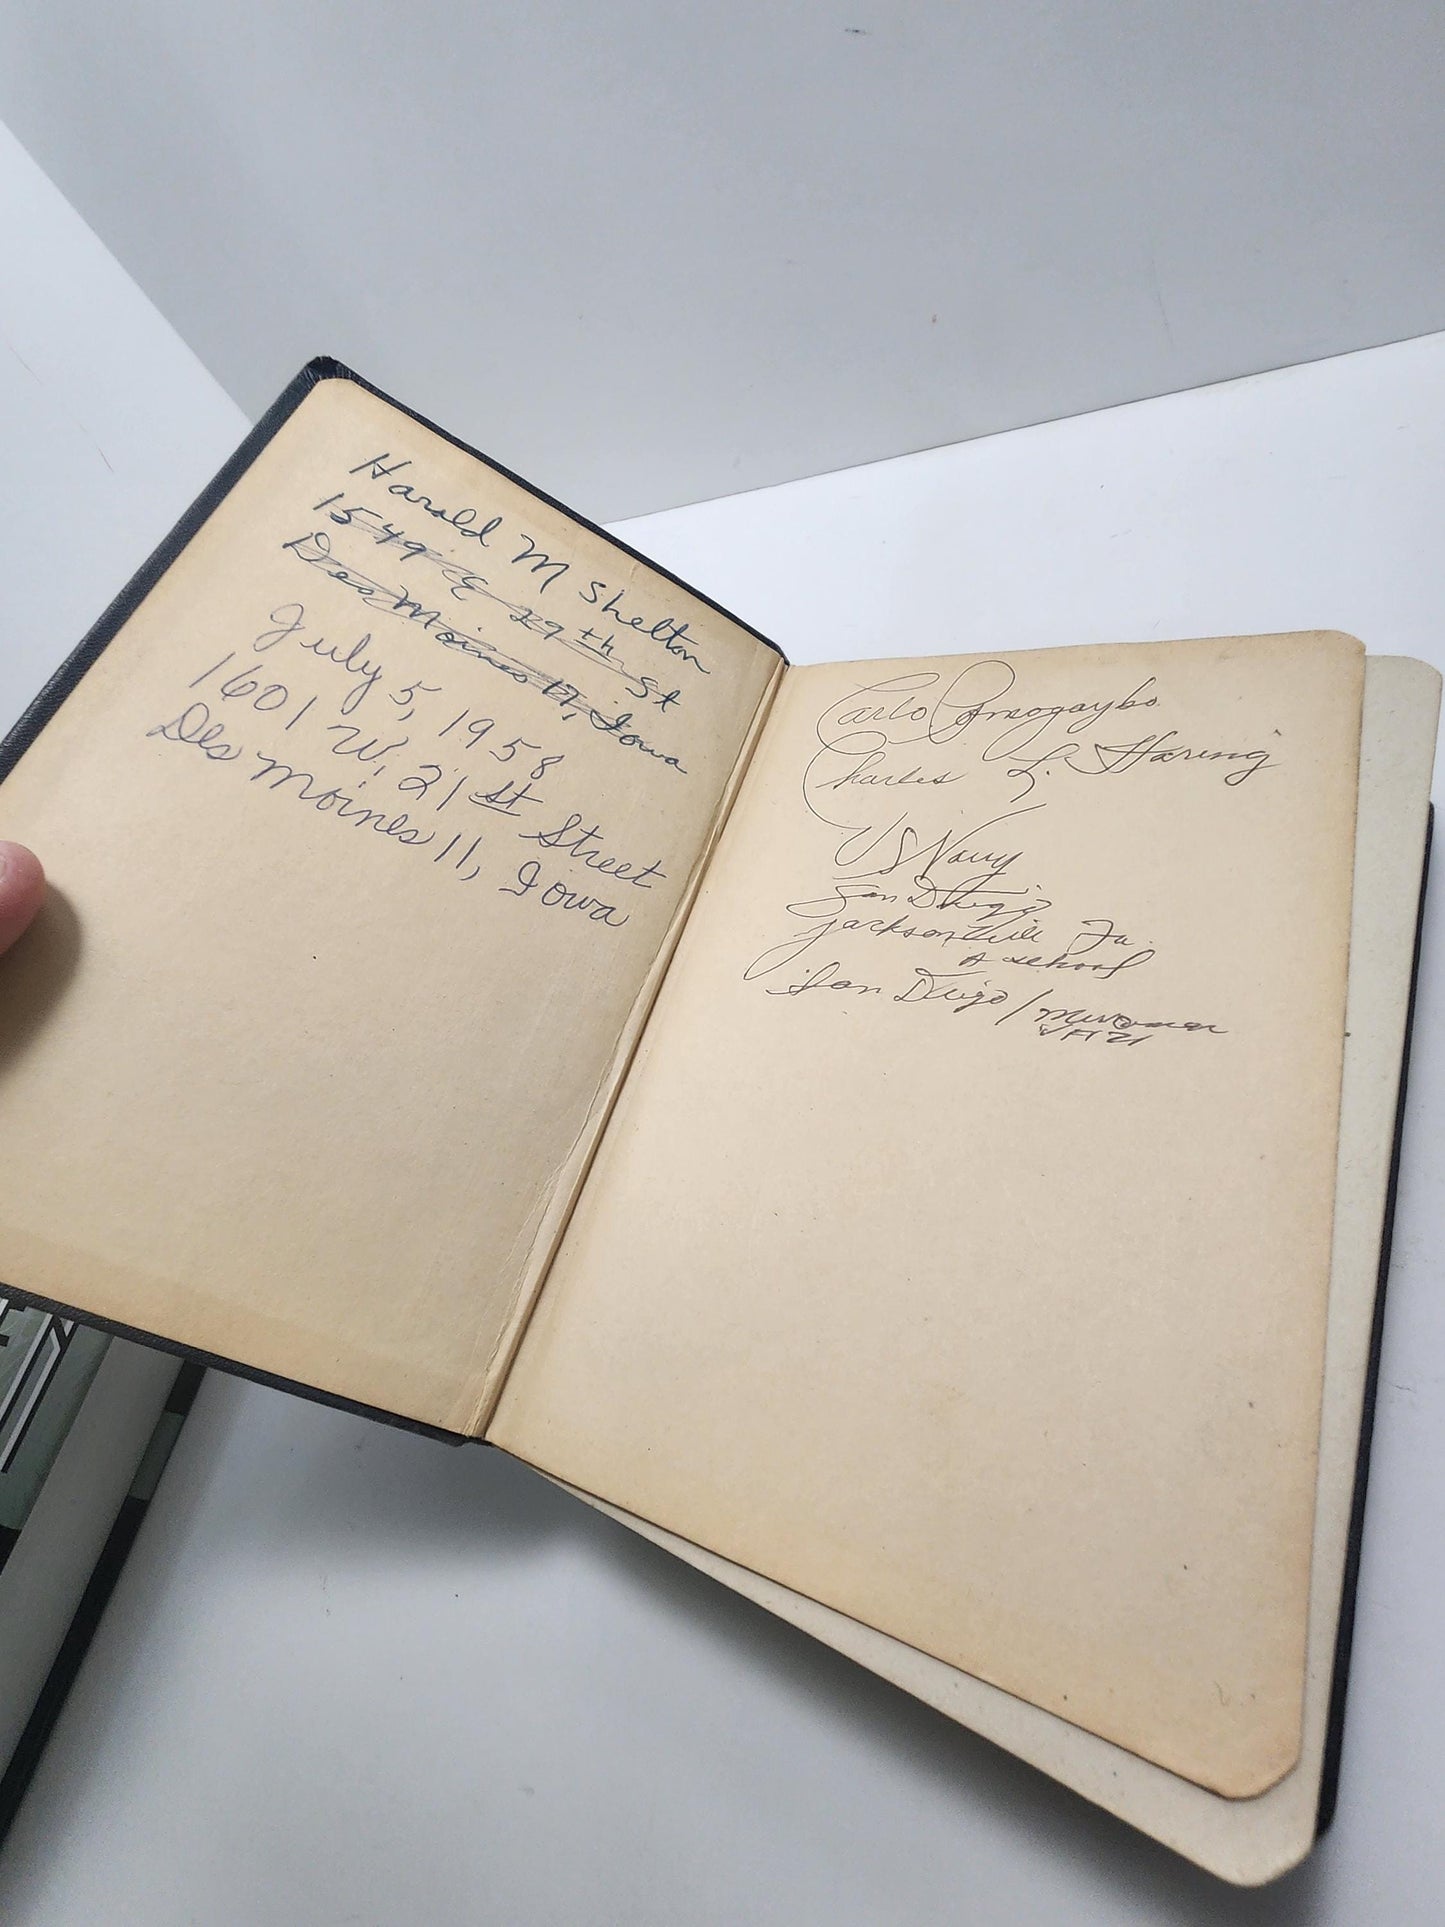 Harold M Shelton
1549 E 29th St
Des Moines 17, Iowa
July 5, 1958
1601 W. 21st Street
Des Moines 11, Iowa
Carlo
Charles L. Haring
US Navy
San Diego
Jacksonville Fla.
A School
San Diego / Miramar
VF121